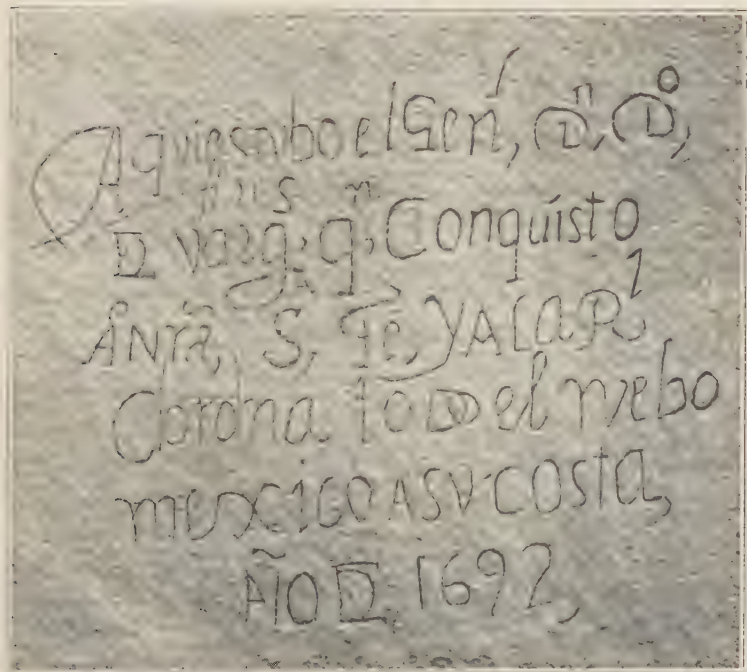 Aqui estubo el Genˡ, Dⁿ, Dº,
D vargˢ, qⁿ, Conquisto
ANrã, S, Fe, YALa Rˡ
Corona toDo el nvebo
mexico ASV COSta,
AÑO D 1692,